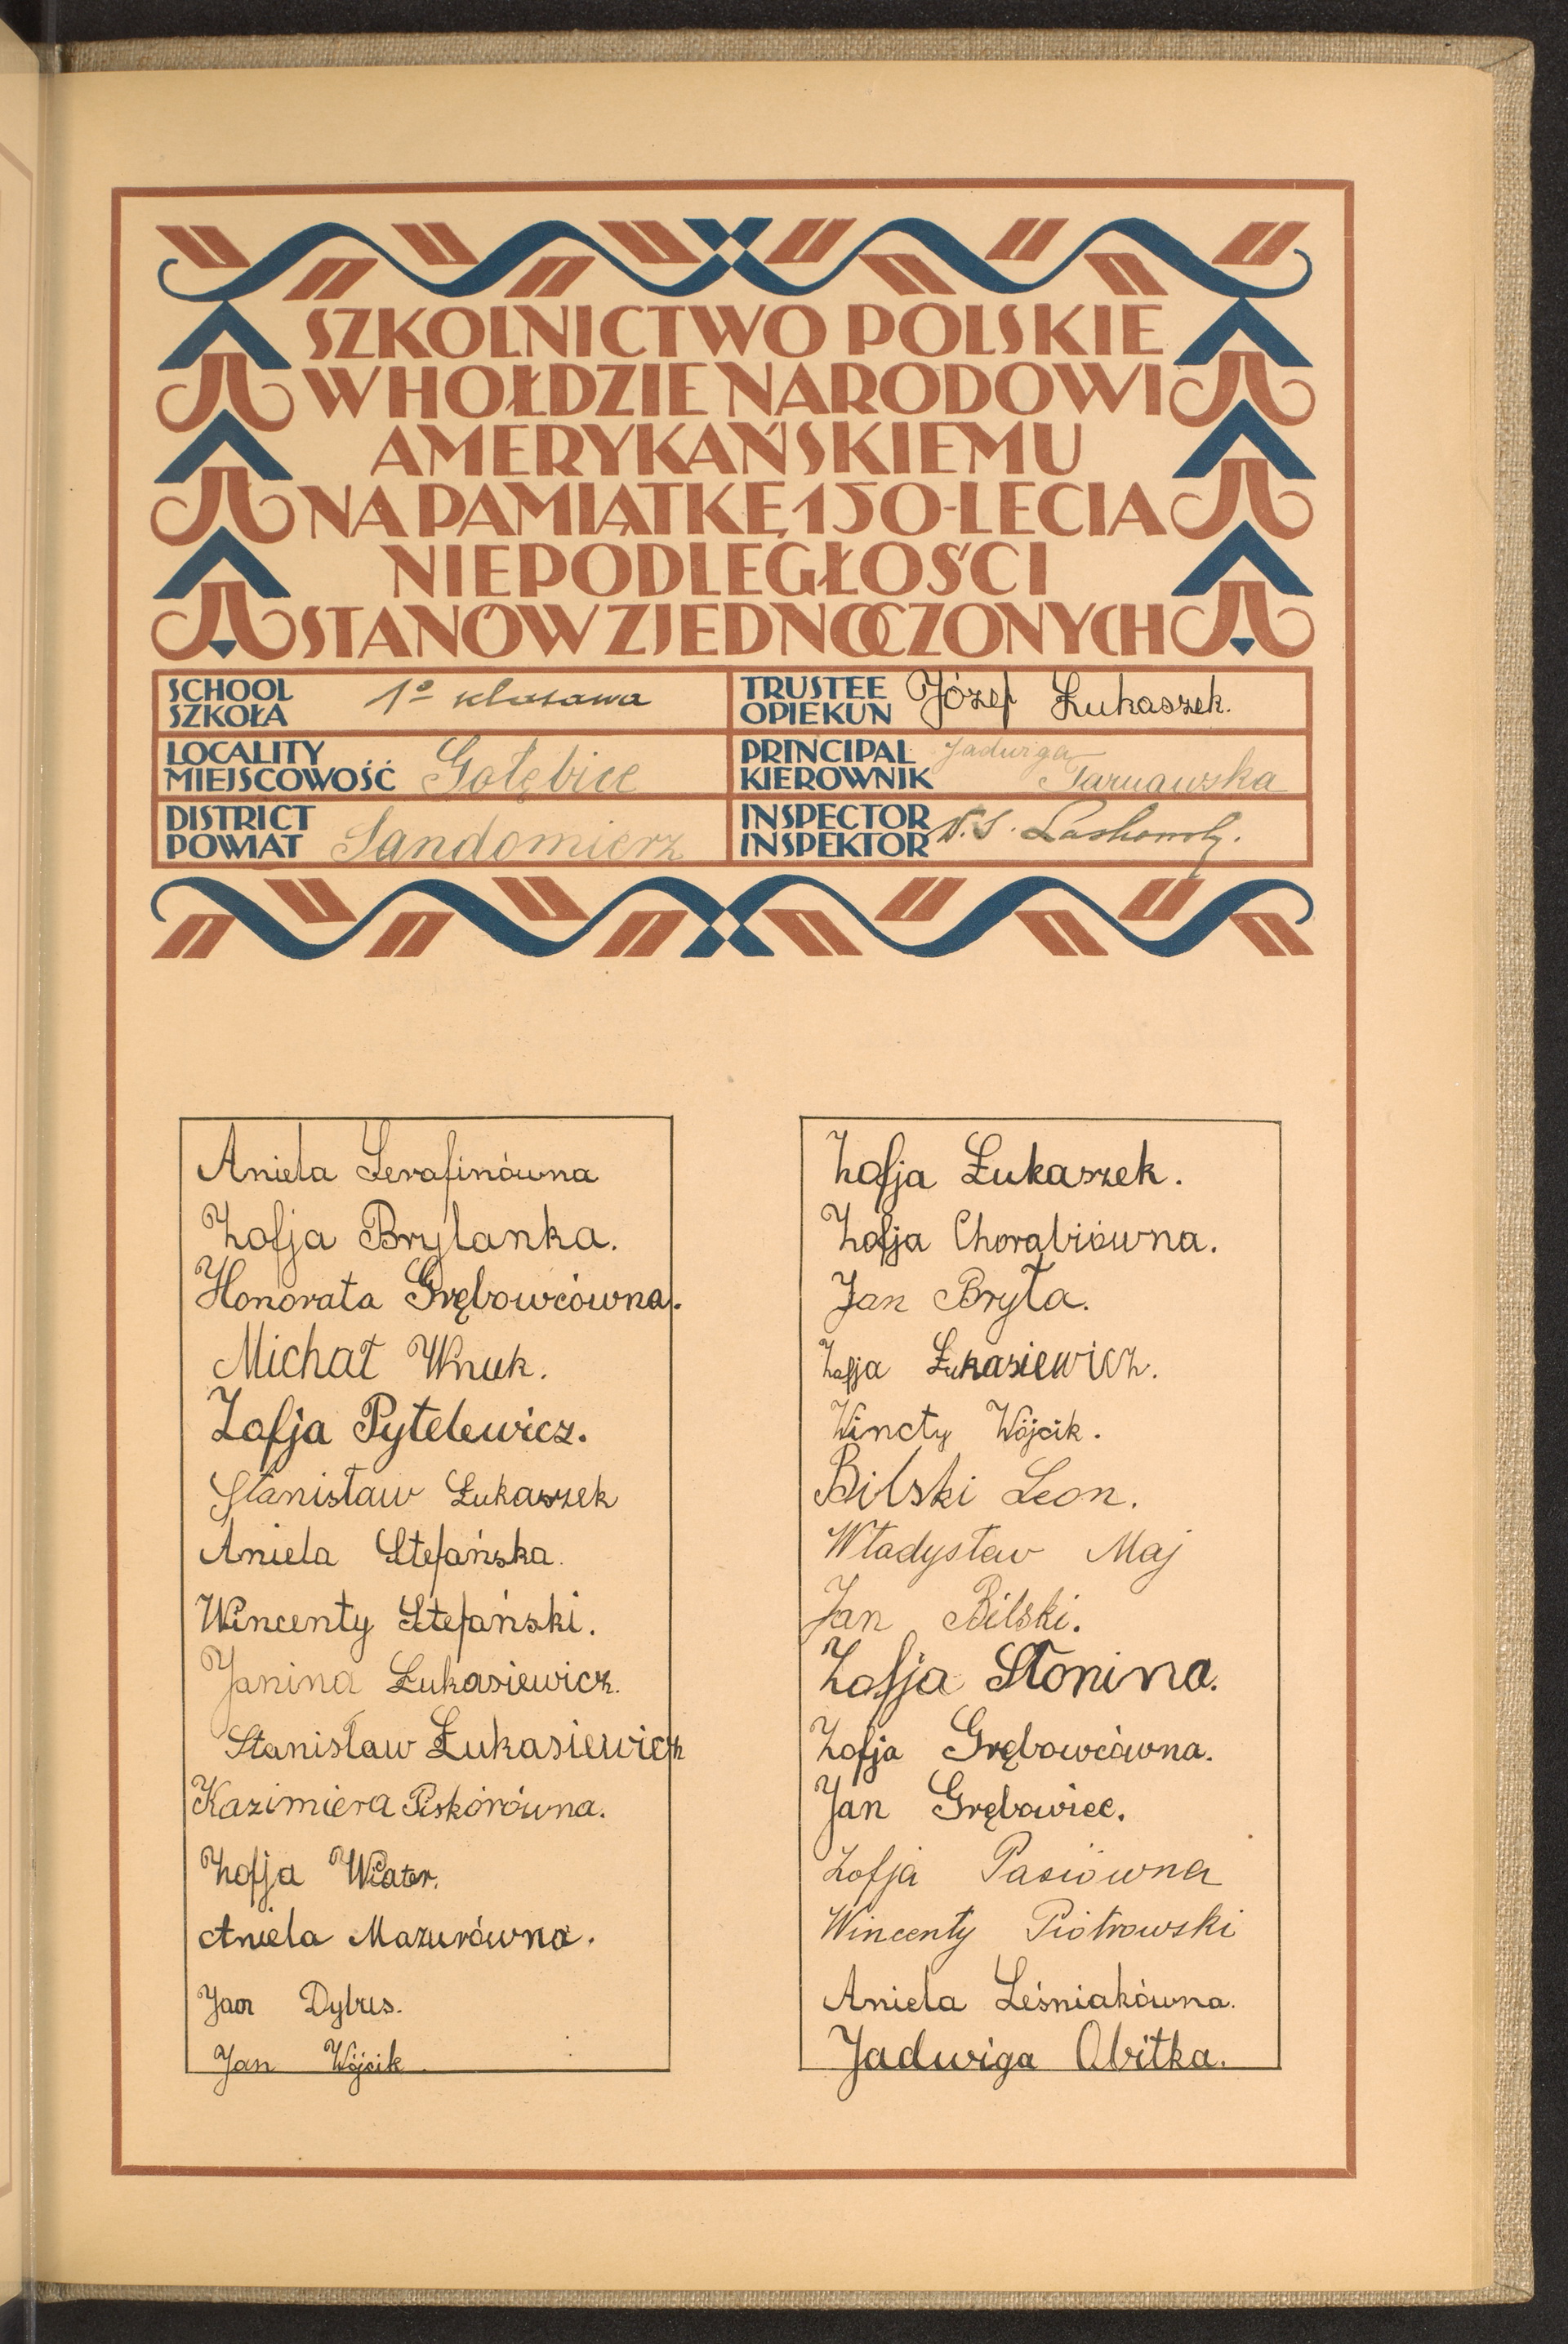 SZKOLNICTWO POLSKIE
W HOŁDZIE NARODOWI
AMERYKAŃSKIEMU
NA PAMIĄTKĘ 150-LECIA
NIEPODLEGŁOŚCI
STANÓW ZJEDNOCZONYCH
SCHOOL
SZKOŁA
1º klasowa
TRUSTEE
OPIEKUN
Józef Łukaszek.
LOCALITY
MIEJSCOWOŚĆ
Gołębice
PRINCIPAL
KIEROWNIK
Jadwiga
Tarnawska
DISTRICT
POWIAT
Sandomierz
INSPECTOR
INSPEKTOR
Aniela Serafinówna
Zofja Brylanka.
Honorata Grębowcówna.
Michał Wnuk.
Zofja Pytelewicz.
Stanisław Łukaszek
Aniela Stefańska.
Wincenty Stefański.
Janina Łukasiewicz.
Stanisław Łukasiewicz
Kazimiera Piskórówna.
Zofja Wiater.
Aniela Mazurówna.
Jan Dybus.
Jan Wójcik
Zofja Łukaszek.
Zofja Chorabiówna.
Jan Bryła.
Zofja Łukasiewicz.
Wincty Wójcik.
Bilski Leon.
Władysław Maj
Jan Bilski.
Zofja Słonina.
Zofja Grębowcówna.
Jan Grębowiec.
Zofja Pasiówna
Wincenty Piotrowski
Aniela Leśniakówna.
Jadwiga Obitka.